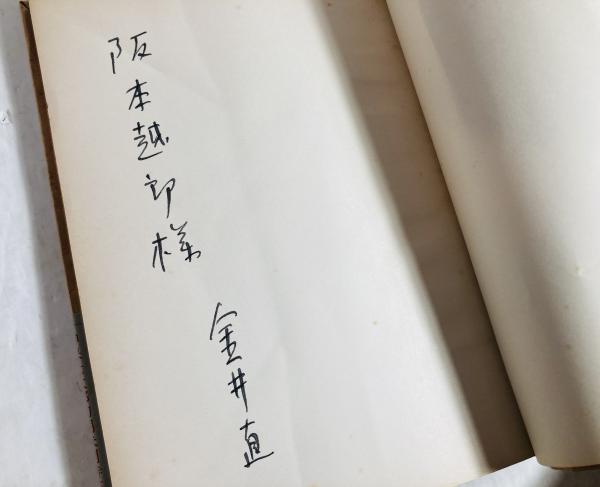 阪本越郎様
金井直